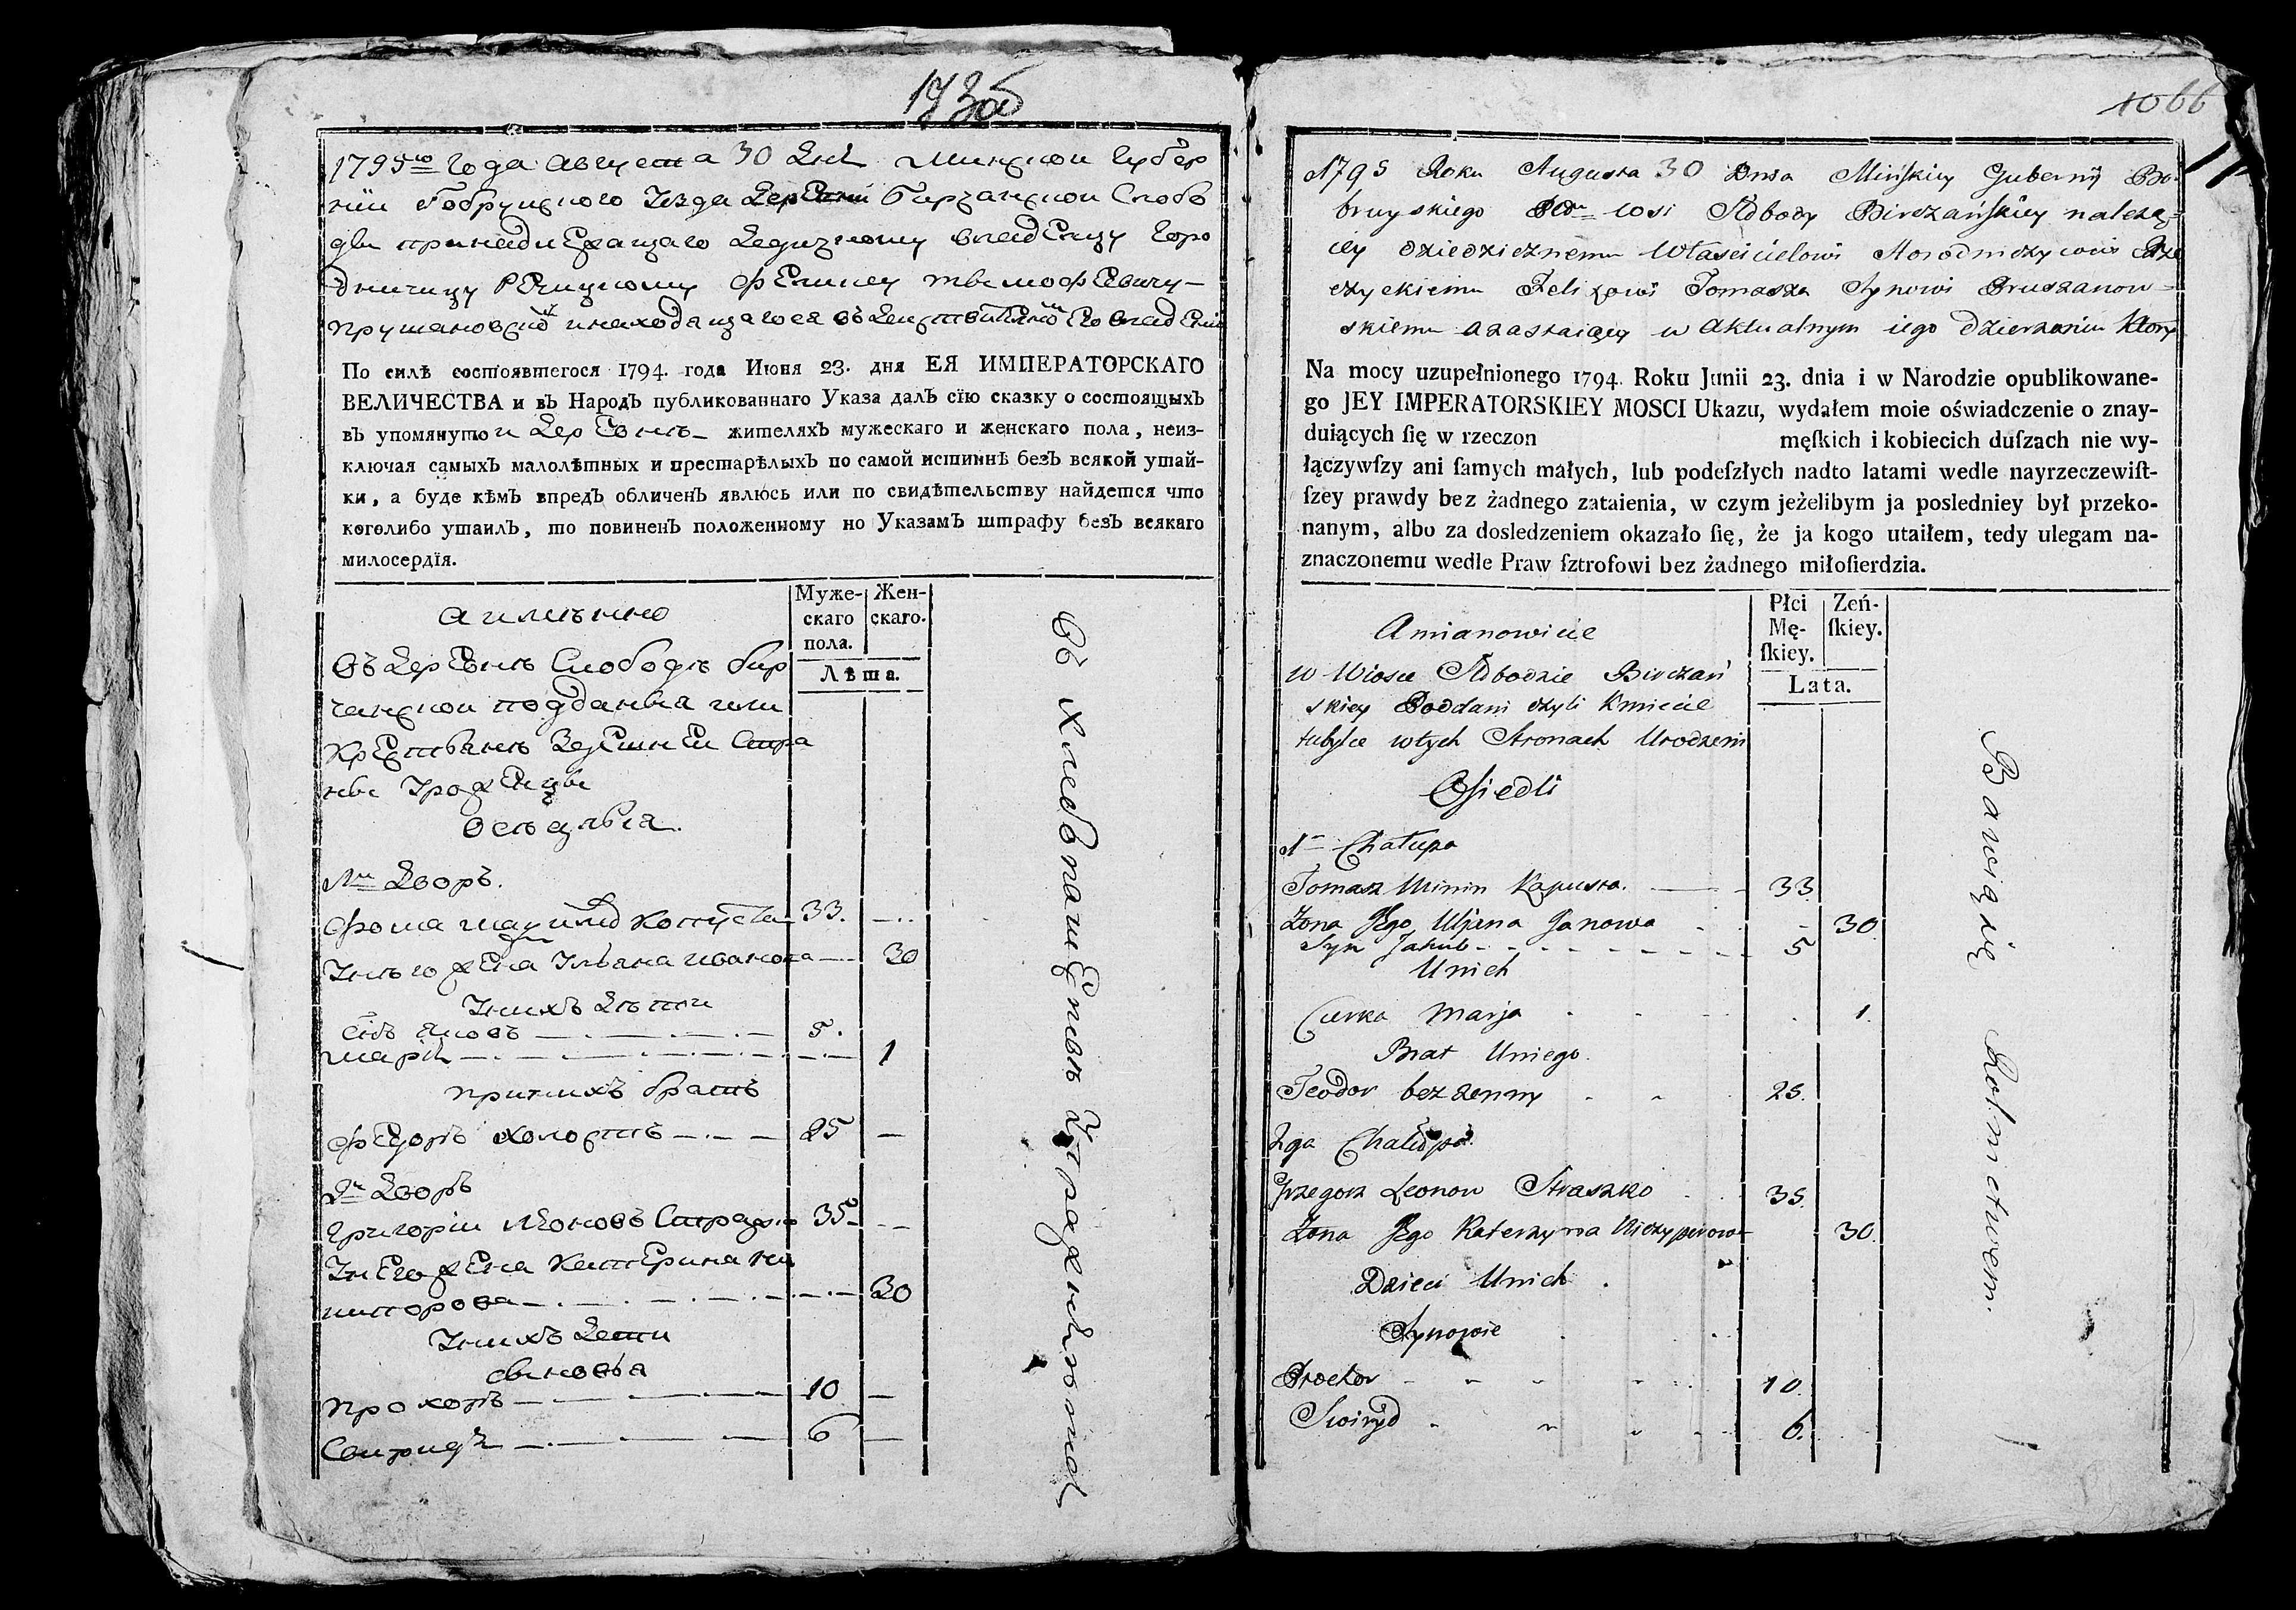 173об
1795го Года августа 30 дня Минской Губер
нiи Бобруйского Уезда деревни Бирчанской Слобо
ды принадлежащаго дедичному владельцу Горо
дничицу Речицкому Феликсу Тимофеевичу
Прушановскому и находящагося въ действительномъ его владенiи
По силѣ состоявшегося 1794. года Июня 23. дня ЕЯ ИМПЕРАТОРСКАГО
ВЕЛИЧЕСТВА и въ Народъ публикованнаго Указа далъ сїю сказку о состоящыхъ
въ упомянутой деревнѣ жителяхъ мужескаго и женскаго пола, неиз-
ключая самыхъ малолѣтных и престарѣлыхъ по самой истиннѣ безъ всякой утай-
ки, а буде кѣмъ впредъ обличенъ явлюсь или по свидѣтельству найдется что
коголибо утаилъ, то повиненъ положенному по Указамъ штрафу безъ всякаго
милосердїя.
а имѣнно
Муже-
скаго
пола.
Жен-
скаго.
Лѣта.
Въ деревнѣ Слободѣ Бир
чанской подданыя или
Крестьянѣ здешней Сторо
ны Уроженцы
Оселыя
1й дворъ.
Фома Капуста 33.
У него жена Ульяна Иванова 30
У нихъ дѣти
Сiнъ Яковъ 5.
Марiя 1
При нихъ братъ
Федоръ холостъ 25
2й дворъ
Григорiй Леоновъ Страшко 35
У него жена Катерина Ни
чипорова 30
У нихъ дети
сыновья
Прохоръ 10
Свиридъ 6
Въ хлебопашественѣ упражняются
1066
1795 Roku Augusta 30 Dnia Mińskiey Gubernij Bo-
bruyskiego Pttu wsi Słobody Birczańskiey należą-
cey dziedzicznemu Właścicielowi Horodniczycowi Rze
czyckiemu Felixowi Tomasza Synowi Pruszanow-
skiemu a zostaiącey w aktualnym iego dzierżeniu który
Na mocy uzupełnionego 1794. Roku Junii 23. dnia i w Narodzie opublikowane-
go JEY IMPERATORSKIEY MOSCI Ukazu, wydałem moie oświadczenie o znay-
duiących ſię w rzeczon męſkich i kobiecich duſzach nie wy-
łączywſzy ani ſamych małych, lub podeſzłych nadto latami wedle nayrzeczewiſt-
ſzey prawdy bez żadnego zataienia, w czym jeżelibym ja posledniey był przeko-
nanym, albo za dosledzeniem okazało ſię, że ja kogo utaiłem, tedy ulegam na-
znaczonemu wedle Praw ſztrofowi bez żadnego miłoſierdzia.
Amianowicie
Płci
Mę-
ſkiey.
Zeń-
ſkiey.
Lata.
w Wiosce Słobodzie Birczań
skiey Poddani czyli Kmiecie
tubylce w tych Stronach Urodzeni
Osiedli
1a Chałupa
Tomasz Minin Kapusta. 33
Zona Jego Uljana Janowa 30
Syn Jakub 5
U nich
Curka Marja 1.
Brat U niego.
Teodor bezżenny 25.
2ga Chałupa.
Grzegorz Leonow Straszko 35.
Zona Jego Katerzyna Niczyperowa 30.
Dzieci U nich
Synowie
Prochor 10.
Swiryd 6.
Bawią się Rolnictwem.